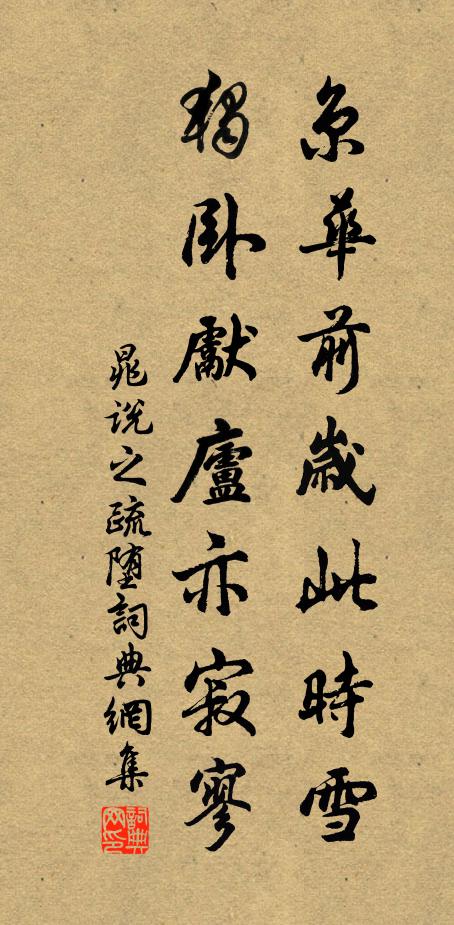 京華前歲此時雪
獨臥獻廬亦寂寥
晁説之疏墮詞典網集
詞典網印